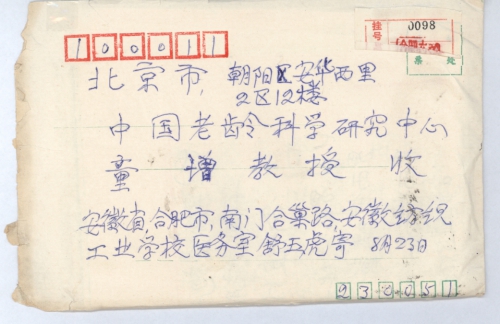 挂号
0098
票 处
100011
北京市,朝阳区安华西里
2区12楼
中国老龄科学研究中心
童增教授 收
安徽省,合肥市,南门合巢路,安徽纺织
工业学校医务室舒五虎寄 8月23日
230051